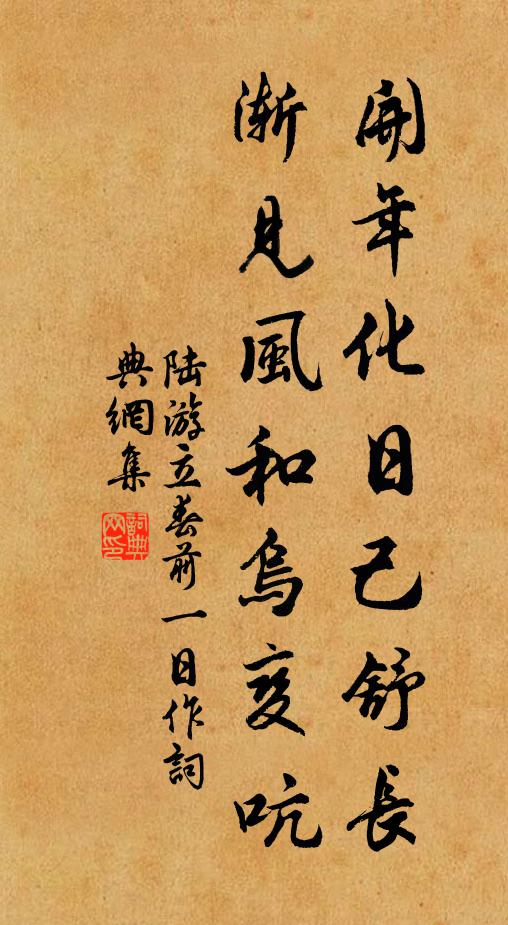 開年化日已舒長
漸見風和鳥變吭
陸游立春前一日作詞
典網集
詞典
网印